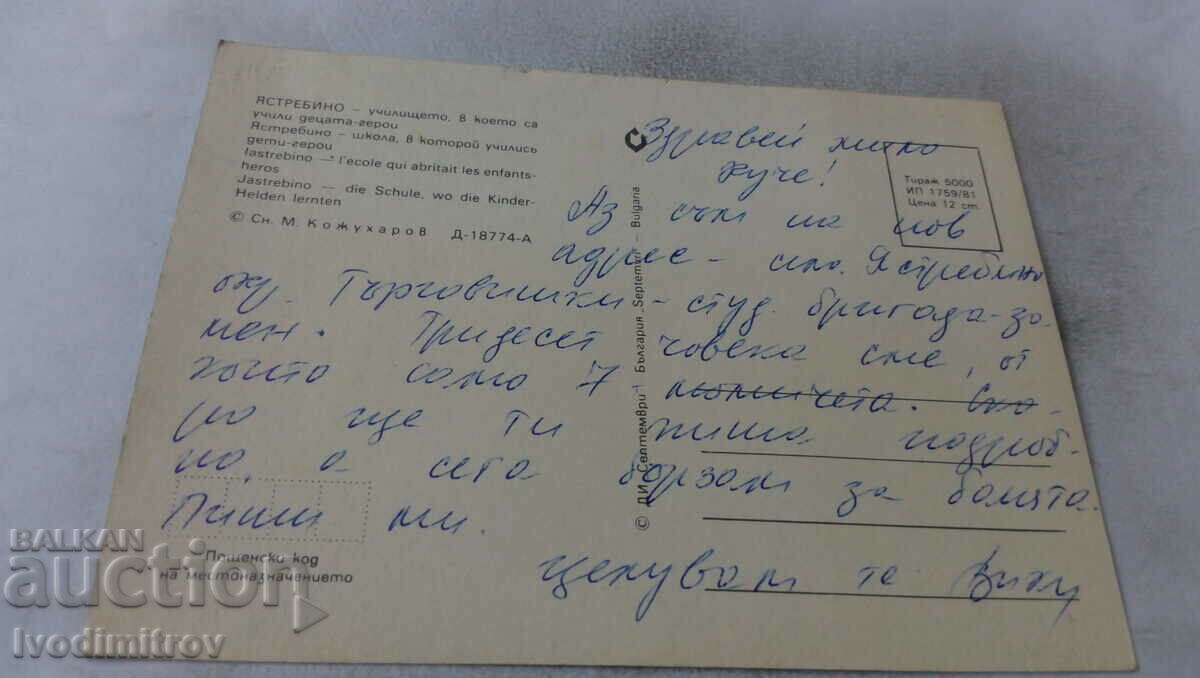 ЯСТРЕБИНО – училището, в което са
учили децата-герои
Ястребино – школа, в которой учились
дети-герои
Iastrebino – l'ecole qui abritait les enfants-
heros
Jastrebino – die Schule, wo die Kinder-
Helden lernten
© Сн. М. Кожухаров Д-18774-А
Тираж 5000
ИП 1759/81
Цена 12 ст.
© ДИ „Септември" България „Septemvri" – Bulgaria
Здравей мило
куче!
Аз съм на нов
адрес – село Ястребино
окр. Търговишки – студ. бригада-за-
мен. Тридесет човека сме, от
които само 7 момичета. Ско-
ро ще ти пиша подроб-
но, а сега бързам за банята.
Пиши ми.
Целувам те
Пощенски код
на местоназначението
BALKAN
auction
Ivodimitrov